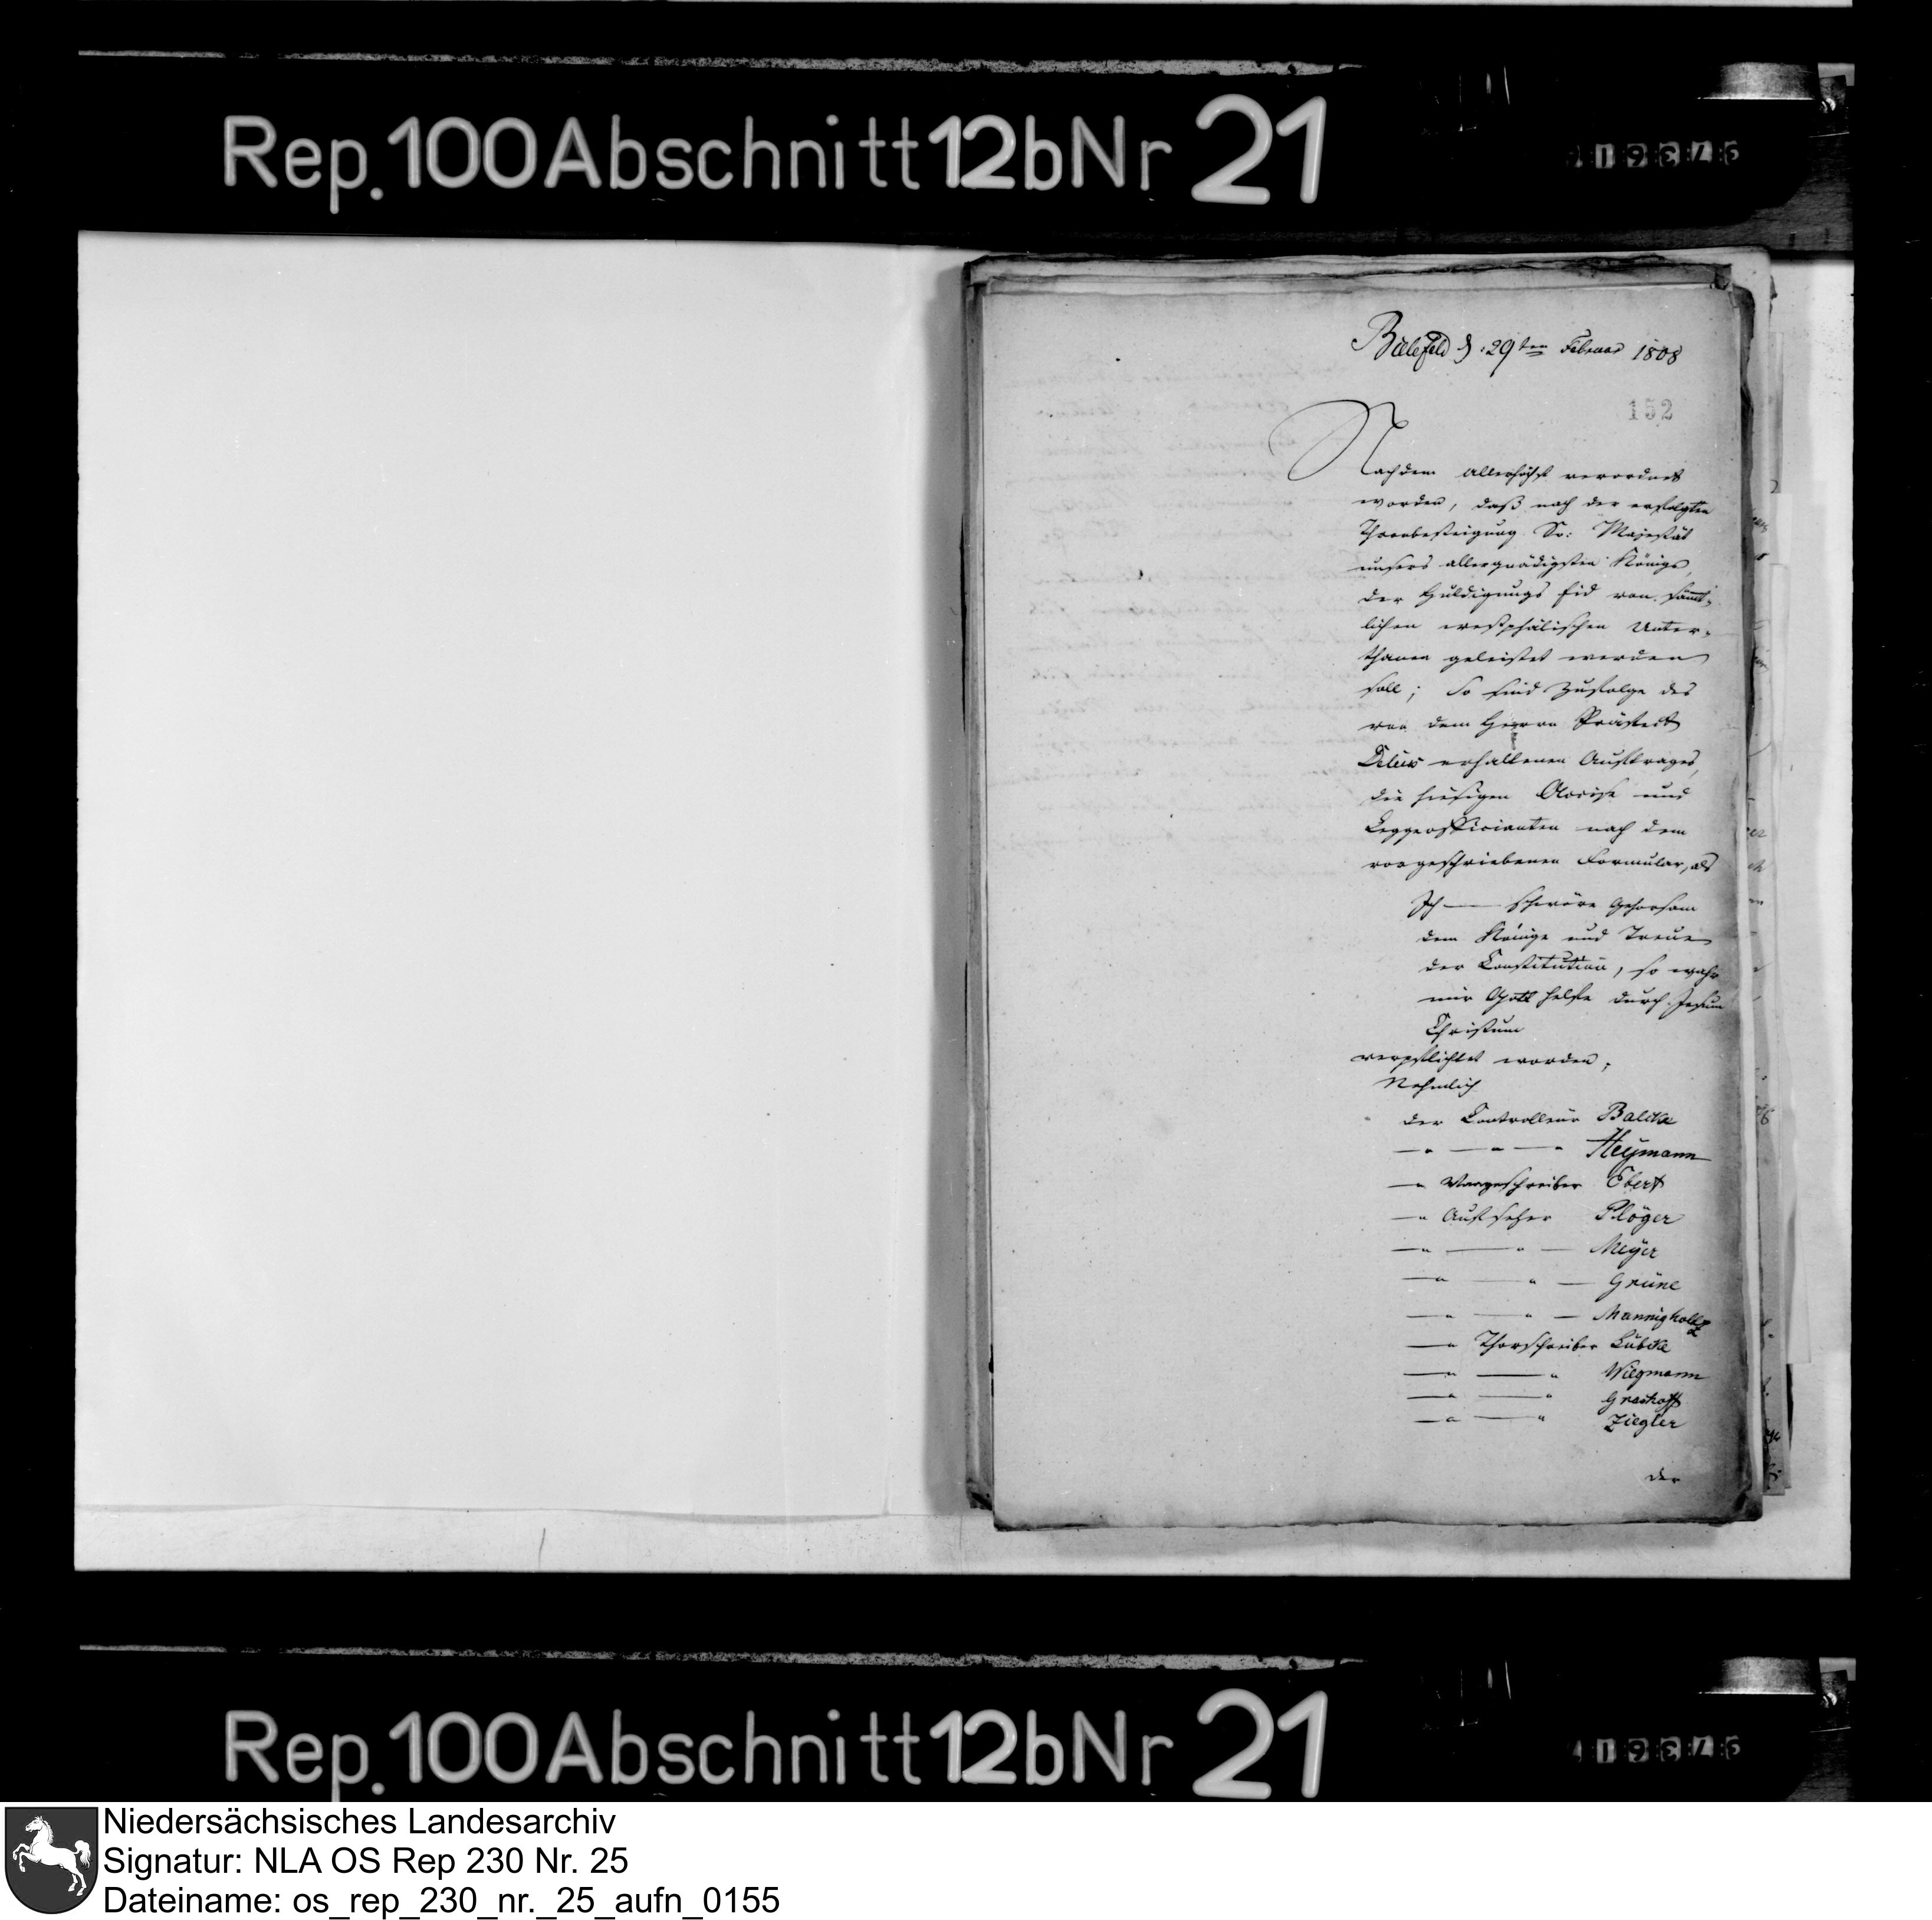 Rep. 100 Abschnitt 12b Nr 21
Bielefeld d: 29ten Februar 1808
152
Nachdem allerhöchst verordnet
worden, daß nach der erfolgten
Thronbesteigung Sr: Majestät
unsers allergnädigsten Königs,
der Huldigungs Eid von sämt-
lichen westphälischen Unter-
thanen geleistet werden
soll; So sind zufolge des
von dem Herrn Präfect
Delius erhaltenen Auftrages,
die hiesigen Accise und
Leggeofficianten nach dem
vorgeschriebenen Formular, als
Ich —— schwöre Gehorsam
dem Könige und Treue
der Constitution, so wahr
mir Gott helfe durch Jesum
Christum
verpflichtet worden,
Nehmlich
der Controlleur Balcke
— " — " — " Heymann
— " Waageschreiber Ebert
— " Aufseher Plöger
— " — " — Meyer
— " — " — Grüne
— " — " — Mannigholl
— " Thorschreiber Lübcke
— " — " Wiegmann
— " — " Grashoff
— " — " Ziegler
der
Rep. 100 Abschnitt 12b Nr 21
Niedersächsisches Landesarchiv
Signatur: NLA OS Rep 230 Nr. 25
Dateiname: os_rep_230_nr._25_aufn_0155